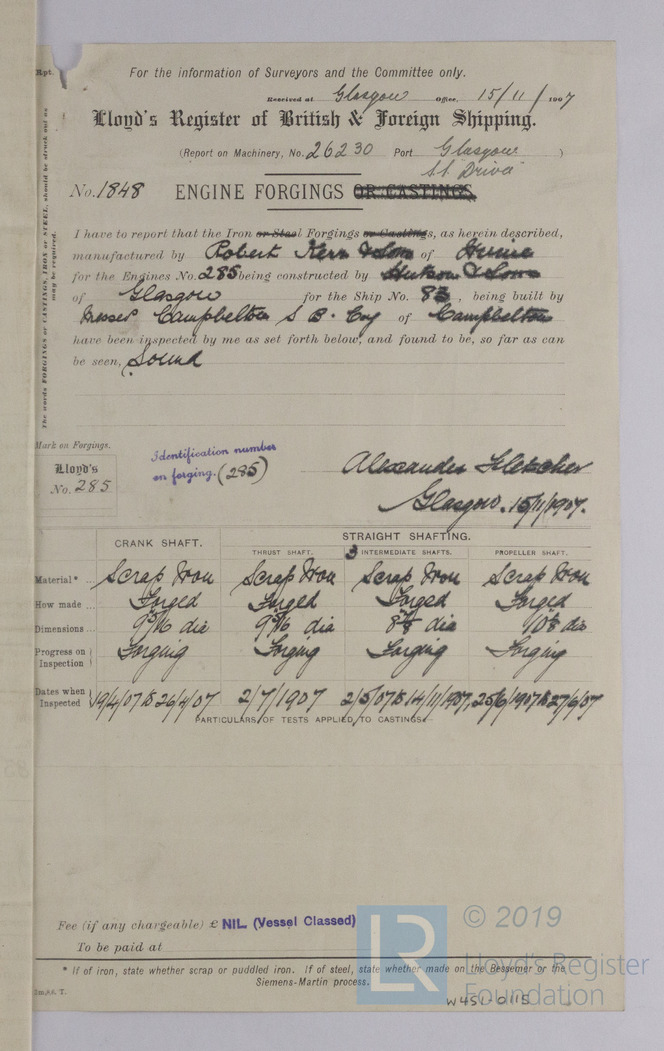 Rpt.
For the information of Surveyors and the Committee only.
Received at Glasgow Office, 15/11/1907
Lloyd's Register of British & Foreign Shipping.
(Report on Machinery, No. 26230 Port Glasgow )
No. 1848 ENGINE FORGINGS OR CASTINGS
The words FORGINGS or CASTINGS, IRON or STEEL, should be struck out as may be required.
I have to report that the Iron or Steel Forgings or Castings, as herein described,
manufactured by Robert Kerr & Sons of Irvine
for the Engines No. 285 being constructed by Hutson & Sons
of Glasgow for the Ship No. 83, being built by
Messrs Campbeltown S B. Coy of Campbeltown
have been inspected by me as set forth below, and found to be, so far as can
be seen, Sound
Mark on Forgings.
Lloyd's
No. 285
Identification number
on forging. (285)
Alexander Fletcher
Glasgow. 15/11/1907.
CRANK SHAFT. STRAIGHT SHAFTING.
THRUST SHAFT. 3 INTERMEDIATE SHAFTS. PROPELLER SHAFT.
Material* ... Scrap Iron Scrap Iron Scrap Iron Scrap Iron
How made ... Forged Forged Forged Forged
Dimensions ... 9 5/16 dia 9 5/16 dia 8 7/8 dia 10 1/8 dia
Progress on Inspection } Forging Forging Forging Forging
Dates when Inspected 19/4/07 to 26/4/07 2/7/1907 2/5/07 to 14/11/1907, 25/6/1907 to 27/6/07
PARTICULARS OF TESTS APPLIED TO CASTINGS.
Fee (if any chargeable) £ NIL. (Vessel Classed)
To be paid at
* If of iron, state whether scrap or puddled iron. If of steel, state whether made on the Bessemer or the
Siemens-Martin process.
LR
© 2019
Lloyd's Register
Foundation
W451-0115